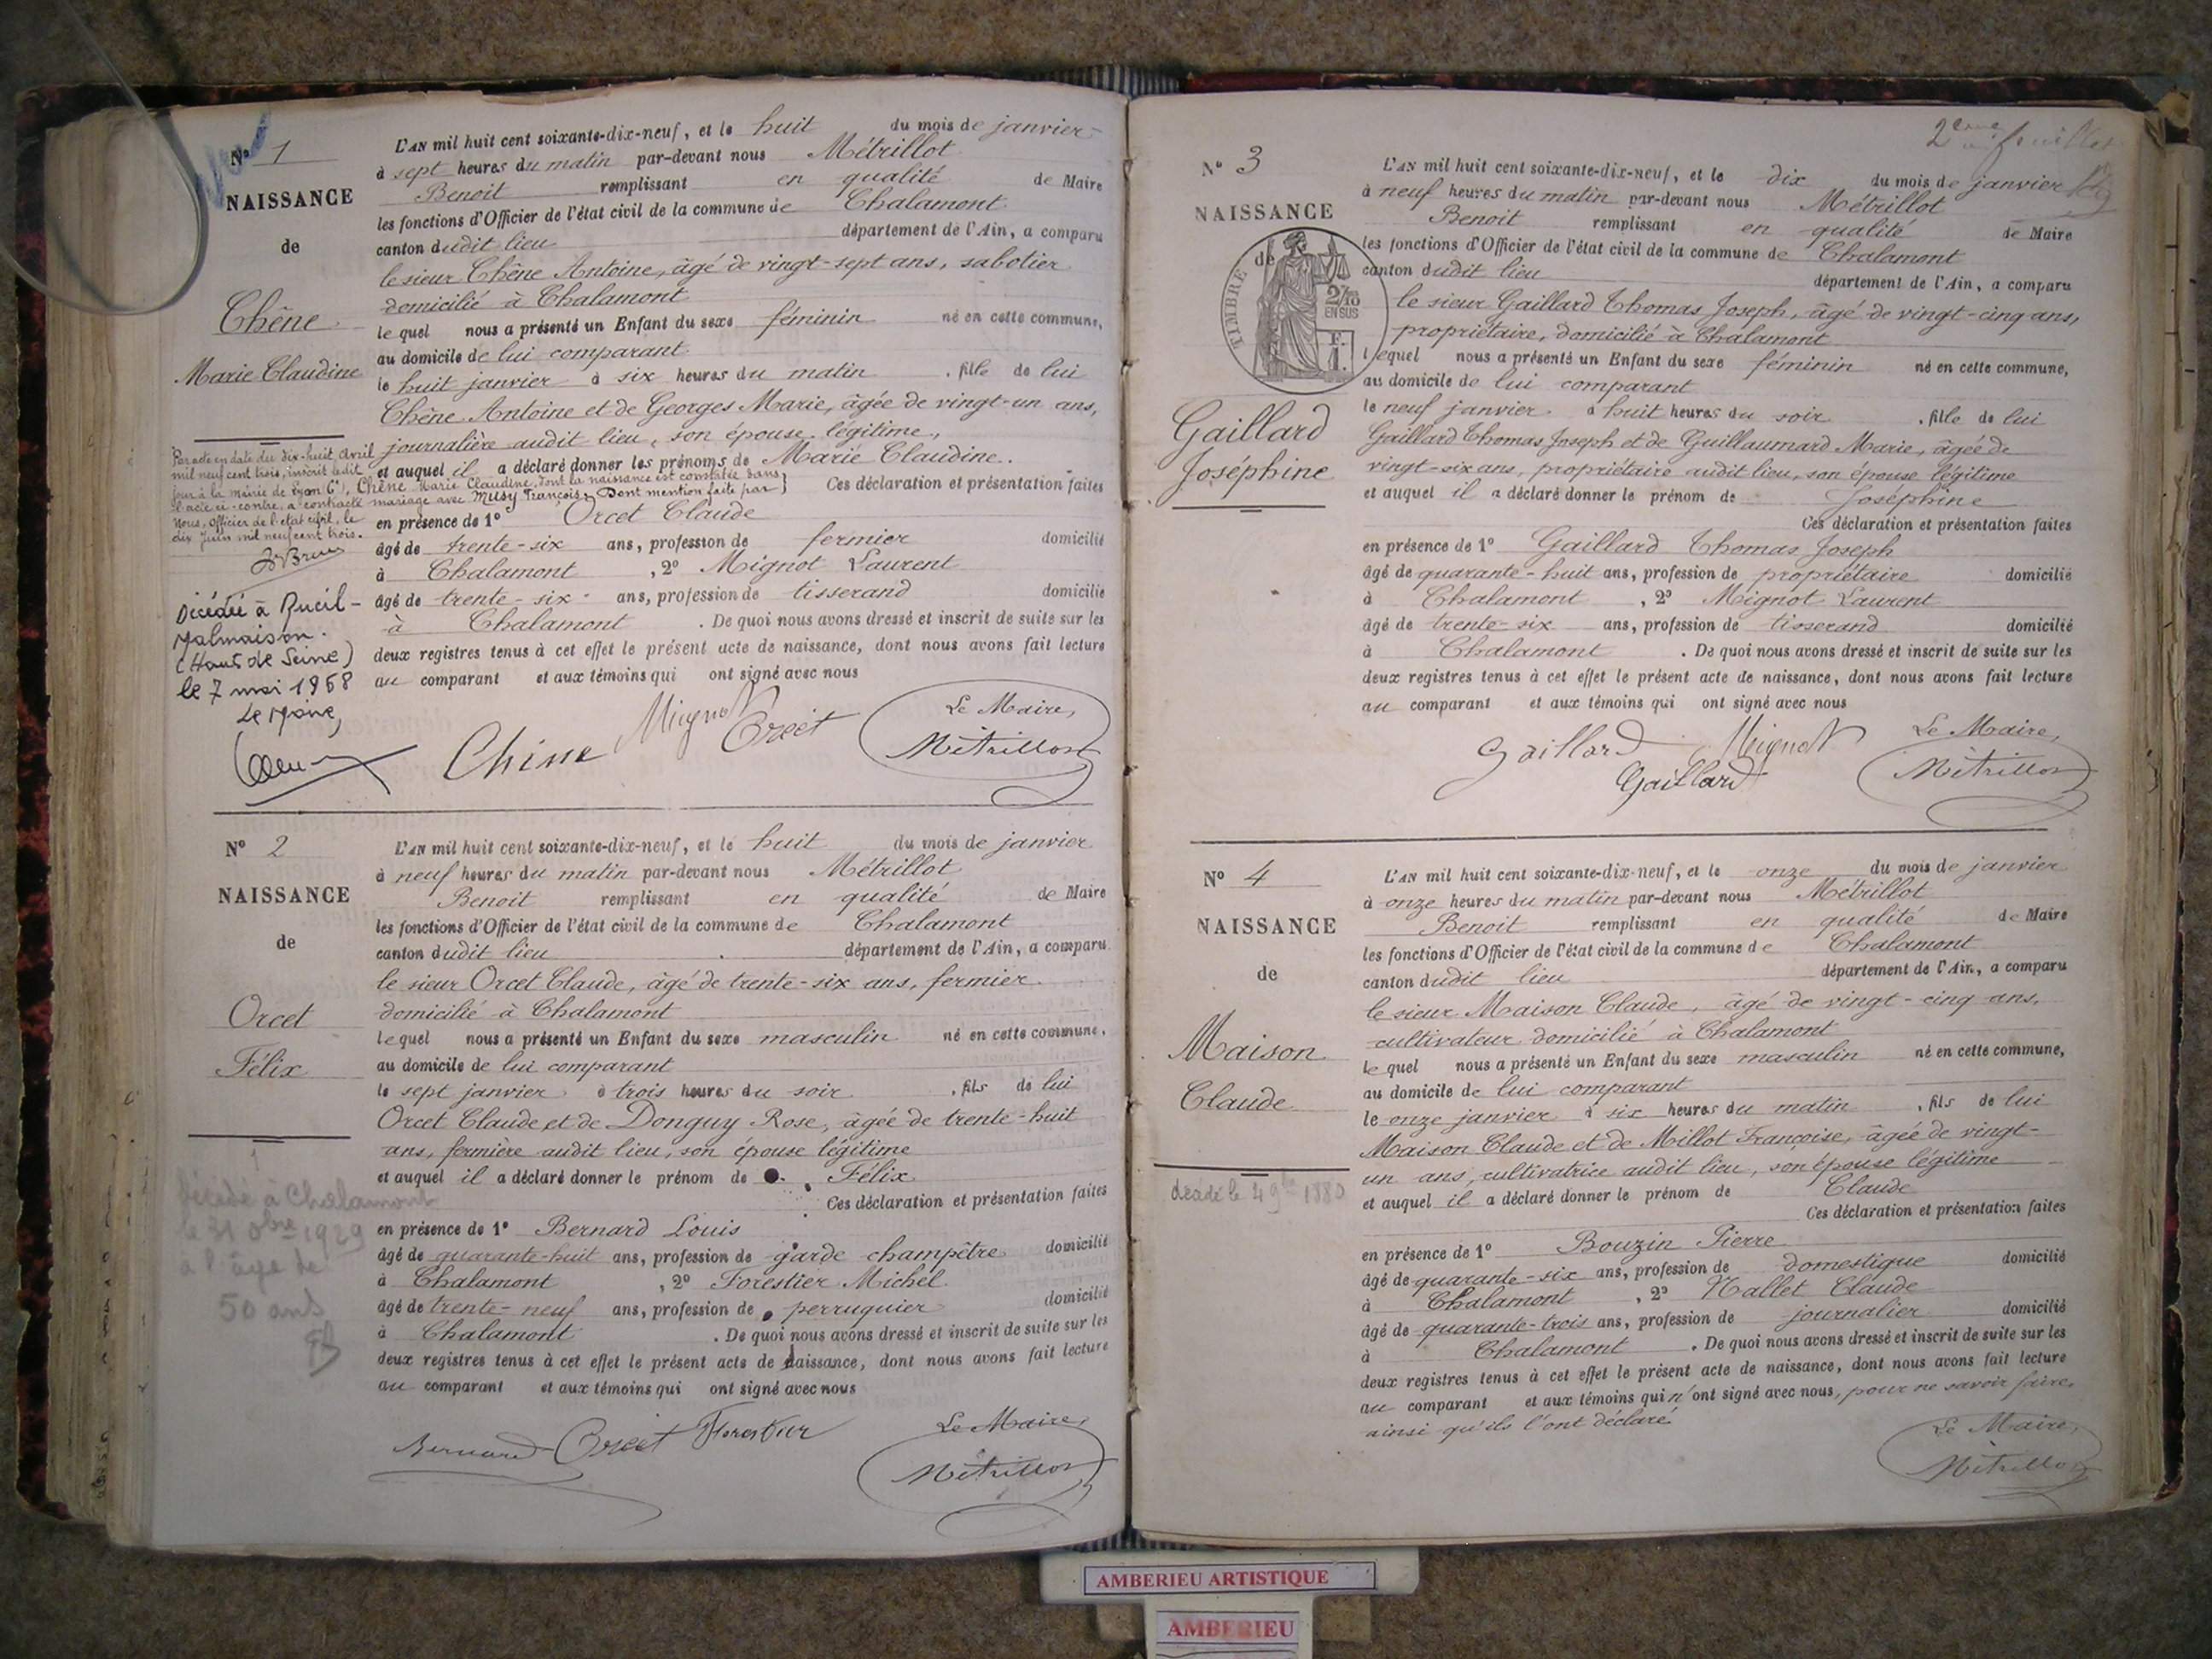 N° 1
NAISSANCE
de
Chêne
Marie Claudine
L'AN mil huit cent soixante-dix-neuf, et le huit du mois de janvier
à sept heures du matin par-devant nous Métrillot
Benoit remplissant en qualité de Maire
les fonctions d'Officier de l'état civil de la commune de Chalamont
canton dudit lieu département de l'Ain, a comparu
le sieur Chêne Antoine, âgé de vingt-sept ans, sabotier
domicilié à Chalamont
le quel nous a présenté un Enfant du sexe féminin né en cette commune,
au domicile de lui comparant
le huit janvier à six heures du matin, fille de lui
Chêne Antoine et de Georges Marie, âgée de vingt-un ans,
journalière audit lieu, son épouse légitime,
et auquel il a déclaré donner les prénoms de Marie Claudine.
Ces déclaration et présentation faites
en présence de 1° Orcet Claude
âgé de trente-six ans, profession de fermier domicilié
à Chalamont, 2° Mignot Laurent
âgé de trente-six ans, profession de tisserand domicilié
à Chalamont. De quoi nous avons dressé et inscrit de suite sur les
deux registres tenus à cet effet le présent acte de naissance, dont nous avons fait lecture
au comparant et aux témoins qui ont signé avec nous
Par acte en date du dix-huit avril
mil neuf cent trois, inscrit ledit
jour à la mairie de Lyon (6e), Chêne Marie Claudine, dont la naissance est constatée dans
l'acte ci-contre, a contracté mariage avec Musy François. Dont mention faite par
Nous, Officier de l'état civil, le
dix juin mil neuf cent trois.
Décédée à Rueil-
Malmaison.
(Hauts de Seine)
le 7 mai 1968
Le Maire,
Chêne Mignot Orcet
Le Maire,
Métrillot
N° 2
NAISSANCE
de
Orcet
Félix
L'AN mil huit cent soixante-dix-neuf, et le huit du mois de janvier
à neuf heures du matin par-devant nous Métrillot
Benoit remplissant en qualité de Maire
les fonctions d'Officier de l'état civil de la commune de Chalamont
canton dudit lieu département de l'Ain, a comparu
le sieur Orcet Claude, âgé de trente-six ans, fermier
domicilié à Chalamont
lequel nous a présenté un Enfant du sexe masculin né en cette commune,
au domicile de lui comparant
le sept janvier à trois heures du soir, fils de lui
Orcet Claude et de Donguy Rose, âgée de trente-huit
ans, fermière audit lieu, son épouse légitime
et auquel il a déclaré donner le prénom de Félix
Ces déclaration et présentation faites
en présence de 1° Bernard Louis
âgé de quarante-huit ans, profession de garde champêtre domicilié
à Chalamont, 2° Forestier Michel
âgé de trente-neuf ans, profession de perruquier domicilié
à Chalamont. De quoi nous avons dressé et inscrit de suite sur les
deux registres tenus à cet effet le présent acte de naissance, dont nous avons fait lecture
au comparant et aux témoins qui ont signé avec nous
décédé à Chalamont
le 31 Obre 1929
à l'âge de
50 ans
Bernard Orcet Forestier
Le Maire,
Métrillot
2eme feuillet
N° 3
NAISSANCE
de
TIMBRE
2/10
EN SUS
F.
1.
Gaillard
Joséphine
L'AN mil huit cent soixante-dix-neuf, et le dix du mois de janvier
à neuf heures du matin par-devant nous Métrillot
Benoit remplissant en qualité de Maire
les fonctions d'Officier de l'état civil de la commune de Chalamont
canton dudit lieu département de l'Ain, a comparu
le sieur Gaillard Thomas Joseph, âgé de vingt-cinq ans,
propriétaire, domicilié à Chalamont
lequel nous a présenté un Enfant du sexe féminin né en cette commune,
au domicile de lui comparant
le neuf janvier à huit heures du soir, fille de lui
Gaillard Thomas Joseph et de Guillaumard Marie, âgée de
vingt-six ans, propriétaire audit lieu, son épouse légitime
et auquel il a déclaré donner le prénom de Joséphine
Ces déclaration et présentation faites
en présence de 1° Gaillard Thomas Joseph
âgé de quarante-huit ans, profession de propriétaire domicilié
à Chalamont, 2° Mignot Laurent
âgé de trente-six ans, profession de tisserand domicilié
à Chalamont. De quoi nous avons dressé et inscrit de suite sur les
deux registres tenus à cet effet le présent acte de naissance, dont nous avons fait lecture
au comparant et aux témoins qui ont signé avec nous
Gaillard Mignot
Gaillard
Le Maire,
Métrillot
N° 4
NAISSANCE
de
Maison
Claude
L'AN mil huit cent soixante-dix-neuf, et le onze du mois de janvier
à onze heures du matin par-devant nous Métrillot
Benoit remplissant en qualité de Maire
les fonctions d'Officier de l'état civil de la commune de Chalamont
canton dudit lieu département de l'Ain, a comparu
le sieur Maison Claude, âgé de vingt-cinq ans,
cultivateur domicilié à Chalamont
le quel nous a présenté un Enfant du sexe masculin né en cette commune,
au domicile de lui comparant
le onze janvier à six heures du matin, fils de lui
Maison Claude et de Millot Françoise, âgée de vingt-
un ans, cultivatrice audit lieu, son épouse légitime
et auquel il a déclaré donner le prénom de Claude
Ces déclaration et présentation faites
en présence de 1° Bouzin Pierre
âgé de quarante-six ans, profession de domestique domicilié
à Chalamont, 2° Nallet Claude
âgé de quarante-trois ans, profession de journalier domicilié
à Chalamont. De quoi nous avons dressé et inscrit de suite sur les
deux registres tenus à cet effet le présent acte de naissance, dont nous avons fait lecture
au comparant et aux témoins qui n'ont signé avec nous, pour ne savoir faire,
ainsi qu'ils l'ont déclaré
décédé le 4 9bre 1880
Le Maire,
Métrillot
AMBERIEU ARTISTIQUE
AMBERIEU